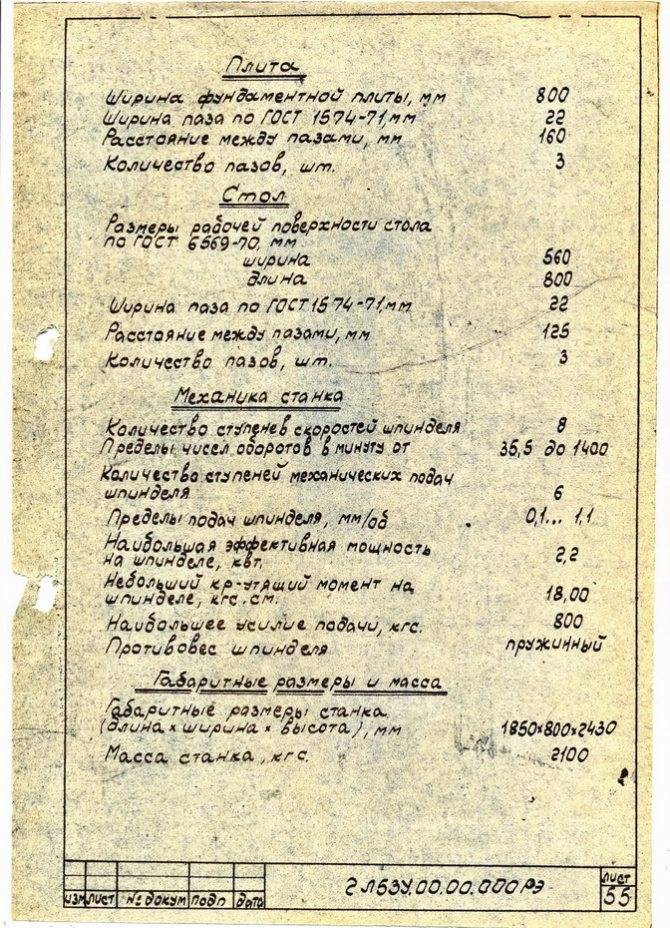 Плита
Ширина фундаментной плиты, мм 800
Ширина паза по ГОСТ 1574-71, мм 22
Расстояние между пазами, мм 160
Количество пазов, шт. 3
Стол
Размеры рабочей поверхности стола
по ГОСТ 6569-70, мм
ширина 560
длина 800
Ширина паза по ГОСТ 1574-71, мм 22
Расстояние между пазами, мм 125
Количество пазов, шт. 3
Механика станка
Количество ступенев скоростей шпинделя 8
Пределы чисел оборотов в минуту от 35,5 до 1400
Количество ступеней механических подач
шпинделя 6
Пределы подач шпинделя, мм/об 0,1... 1,1
Наибольшая эффективная мощность
на шпинделе, квт. 2,2
Небольший кр-утящий момент на
шпинделе, кгс.см. 18,00
Наибольшее усилие подачи, кгс. 800
Противовес шпинделя пружинный
Габаритные размеры и масса
Габаритные размеры станка
(длина×ширина×высота), мм 1850×800×2430
Масса станка, кгс. 2100
2Л53У.00.00.000РЭ
лист
55
изм лист № докум подп дата